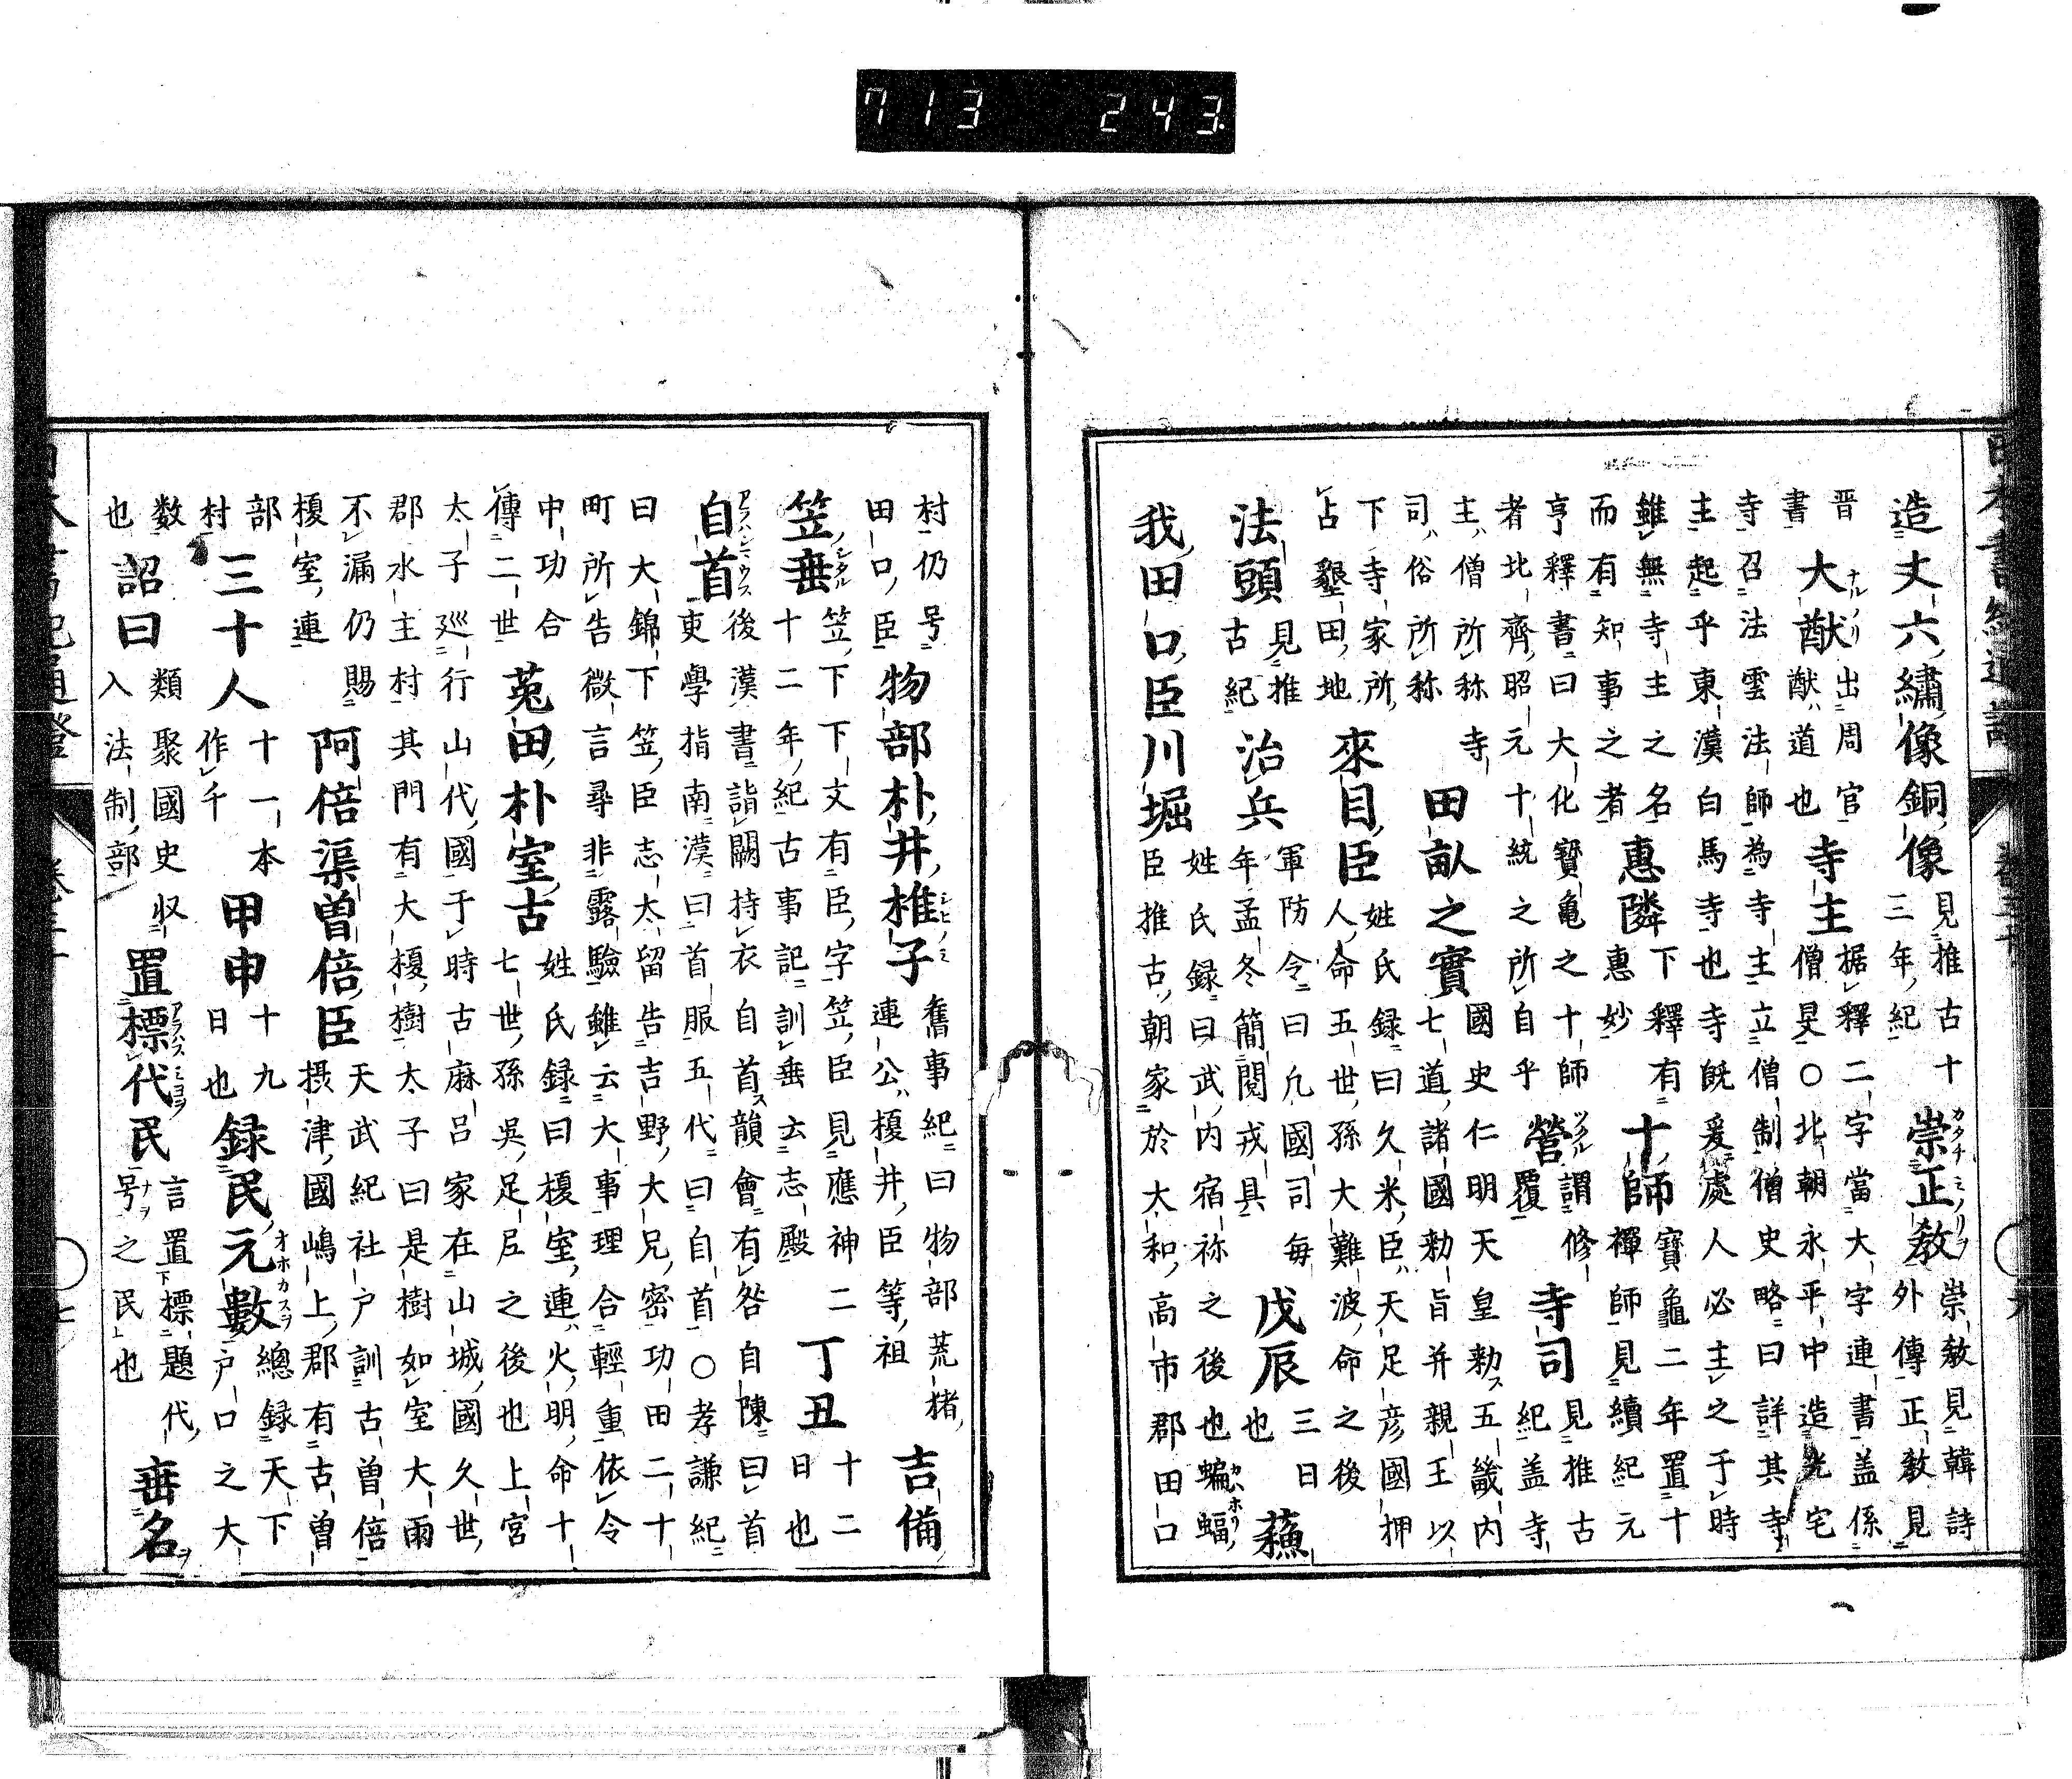 造丈六繡像銅像見推古十三年紀崇正教崇教見韓詩外傳正教見
晋書大猷出周官猷道也寺主据釋二字當大字連書盖係僧旻○北朝永平中造光宅
寺召法雲法師為寺主立僧制僧史略曰詳其寺主起乎東漢白馬寺也寺旣爰處人必主之于時
雖無寺主之名而有知事之者惠隣下釋有惠妙十師寶龜二年置十禪師見續紀元
亨釋書曰大化寶龜之十師者北齊昭元十統之所自乎營謂修覆寺司見推古紀盖寺
主僧所称寺司俗所称田畒之實國史仁明天皇勑五畿内七道諸國勑旨并親王以
下寺家所占墾田地來目臣姓氏録曰久米臣天足彦國押人命五世孫大難波命之後
法頭見推古紀治兵軍防令曰凡國司毎年孟冬簡閲戎具戊辰三日也蘓
我田口臣川堀姓氏録曰武内宿祢之後也蝙蝠臣推古朝家於大和高市郡田口
村仍号田口臣物部朴井椎子舊事紀曰物部荒猪連公榎井臣等祖吉備
笠垂笠下下文有臣字笠臣見應神二十二年紀古事記訓垂云志殿丁丑十二日也
自首後漢書詣闕持衣自首韻會有咎自陳曰首吏學指南漢曰首服五代曰自首○孝謙紀
曰大錦下笠臣志太留告吉野大兄密功田二十町所告微言尋非露驗雖云大事理合輕重依令
中功合傳二世菟田朴室古姓氏録曰榎室連火明命十七世孫呉足尼之後也上宮
太子廵行山代國于時古麻呂家在山城國久世郡水主村其門有大榎樹太子曰是樹如室大雨
不漏仍賜榎室連阿倍渠曽倍臣天武紀社戸訓古曽倍摂津國嶋上郡有古曽
部村三十人十一本作千甲申十九日也録民元數總録天下戸口之大
数也詔曰類聚國史収入法制部置標代民言置標題代号之民也垂名
日本書紀通證
713 243